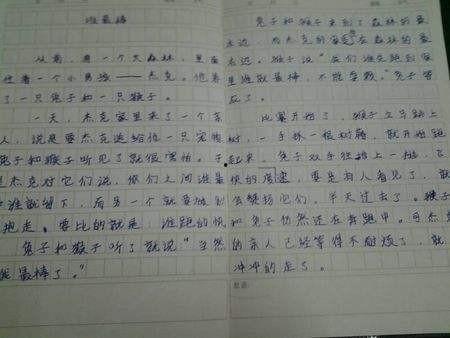 谁最棒
从前,有一个大森林,里面
住着一个小男孩——杰克。他养
了一只兔子和一只猴子。
一天,杰克家里来了一个客
人,说是要杰克送给他一只宠物
兔子和猴子听见了都很害怕。于
是杰克对它们说,你们之间谁最
棒谁就留下,而另一个就要被别
抱走。要比的就是:谁跑的快
兔子和猴子听了就说“当然
我最棒了。”
兔子和猴子来到了森林的最
远边,而杰克的家在森林的最
远。猴子说“我们谁先跑到家
里谁就最棒,不能食数。”兔子答
应了。
比赛开始了,猴子立马跳上
树,一手抓一根树藤,就开始跑
起来。兔子双手往地上一
快的度速,要是有人看见了,
会疑惑它们,半天过去了。猴子
和兔子仍然还在奔跑中。可杰克
的亲人已经等得不耐烦了,就
冲冲的走了。